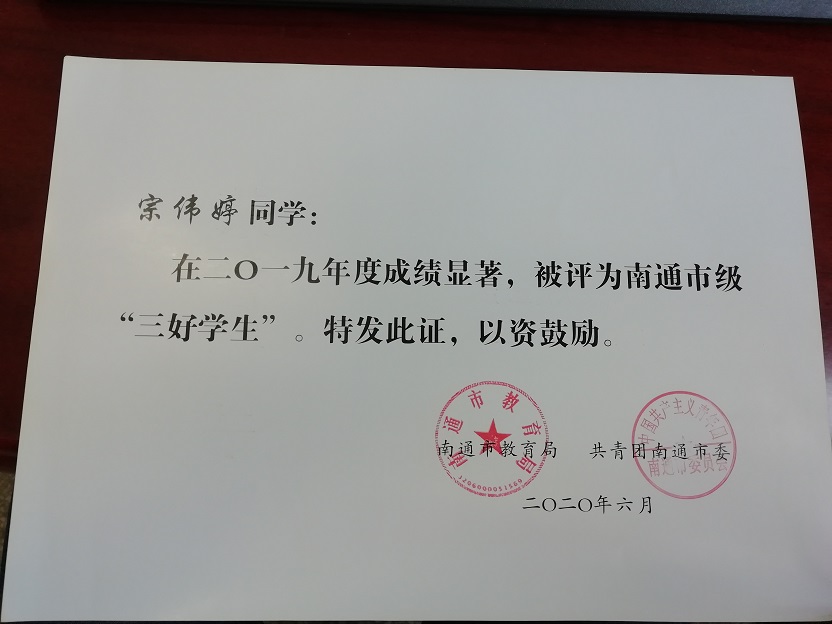 宗伟婷同学：
在二〇一九年度成绩显著，被评为南通市级
“三好学生”。特发此证，以资鼓励。
南通市教育局
3206000051569
南通市教育局 共青团南通市委
中国共产主义青年团
南通市委员会
二〇二〇年六月